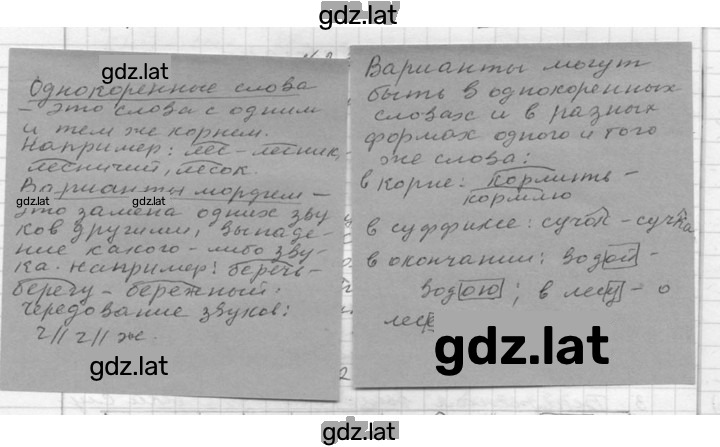 gdz.lat
Однокоренные слова
– это слова с одним
и тем же корнем.
Например: лес – лесник,
лесничий, лесок.
Варианты морфем –
это замена одних зву
ков другими, выпаде-
ние какого-либо зву-
ка. Например: беречь-
берегу – бережный.
Чередование звуков:
г // ч // ж.
Варианты могут
быть в однокоренных
словах и в разных
формах одного и того
же слова:
в корне: кормить –
кормлю
в суффиксе: сучок – сучка
в окончании: водой –
водою; в лесу – о
лесе
gdz.lat
gdz.lat
gdz.lat
gdz.lat
gdz.lat
gdz.lat
gdz.lat
gdz.lat
gdz.lat